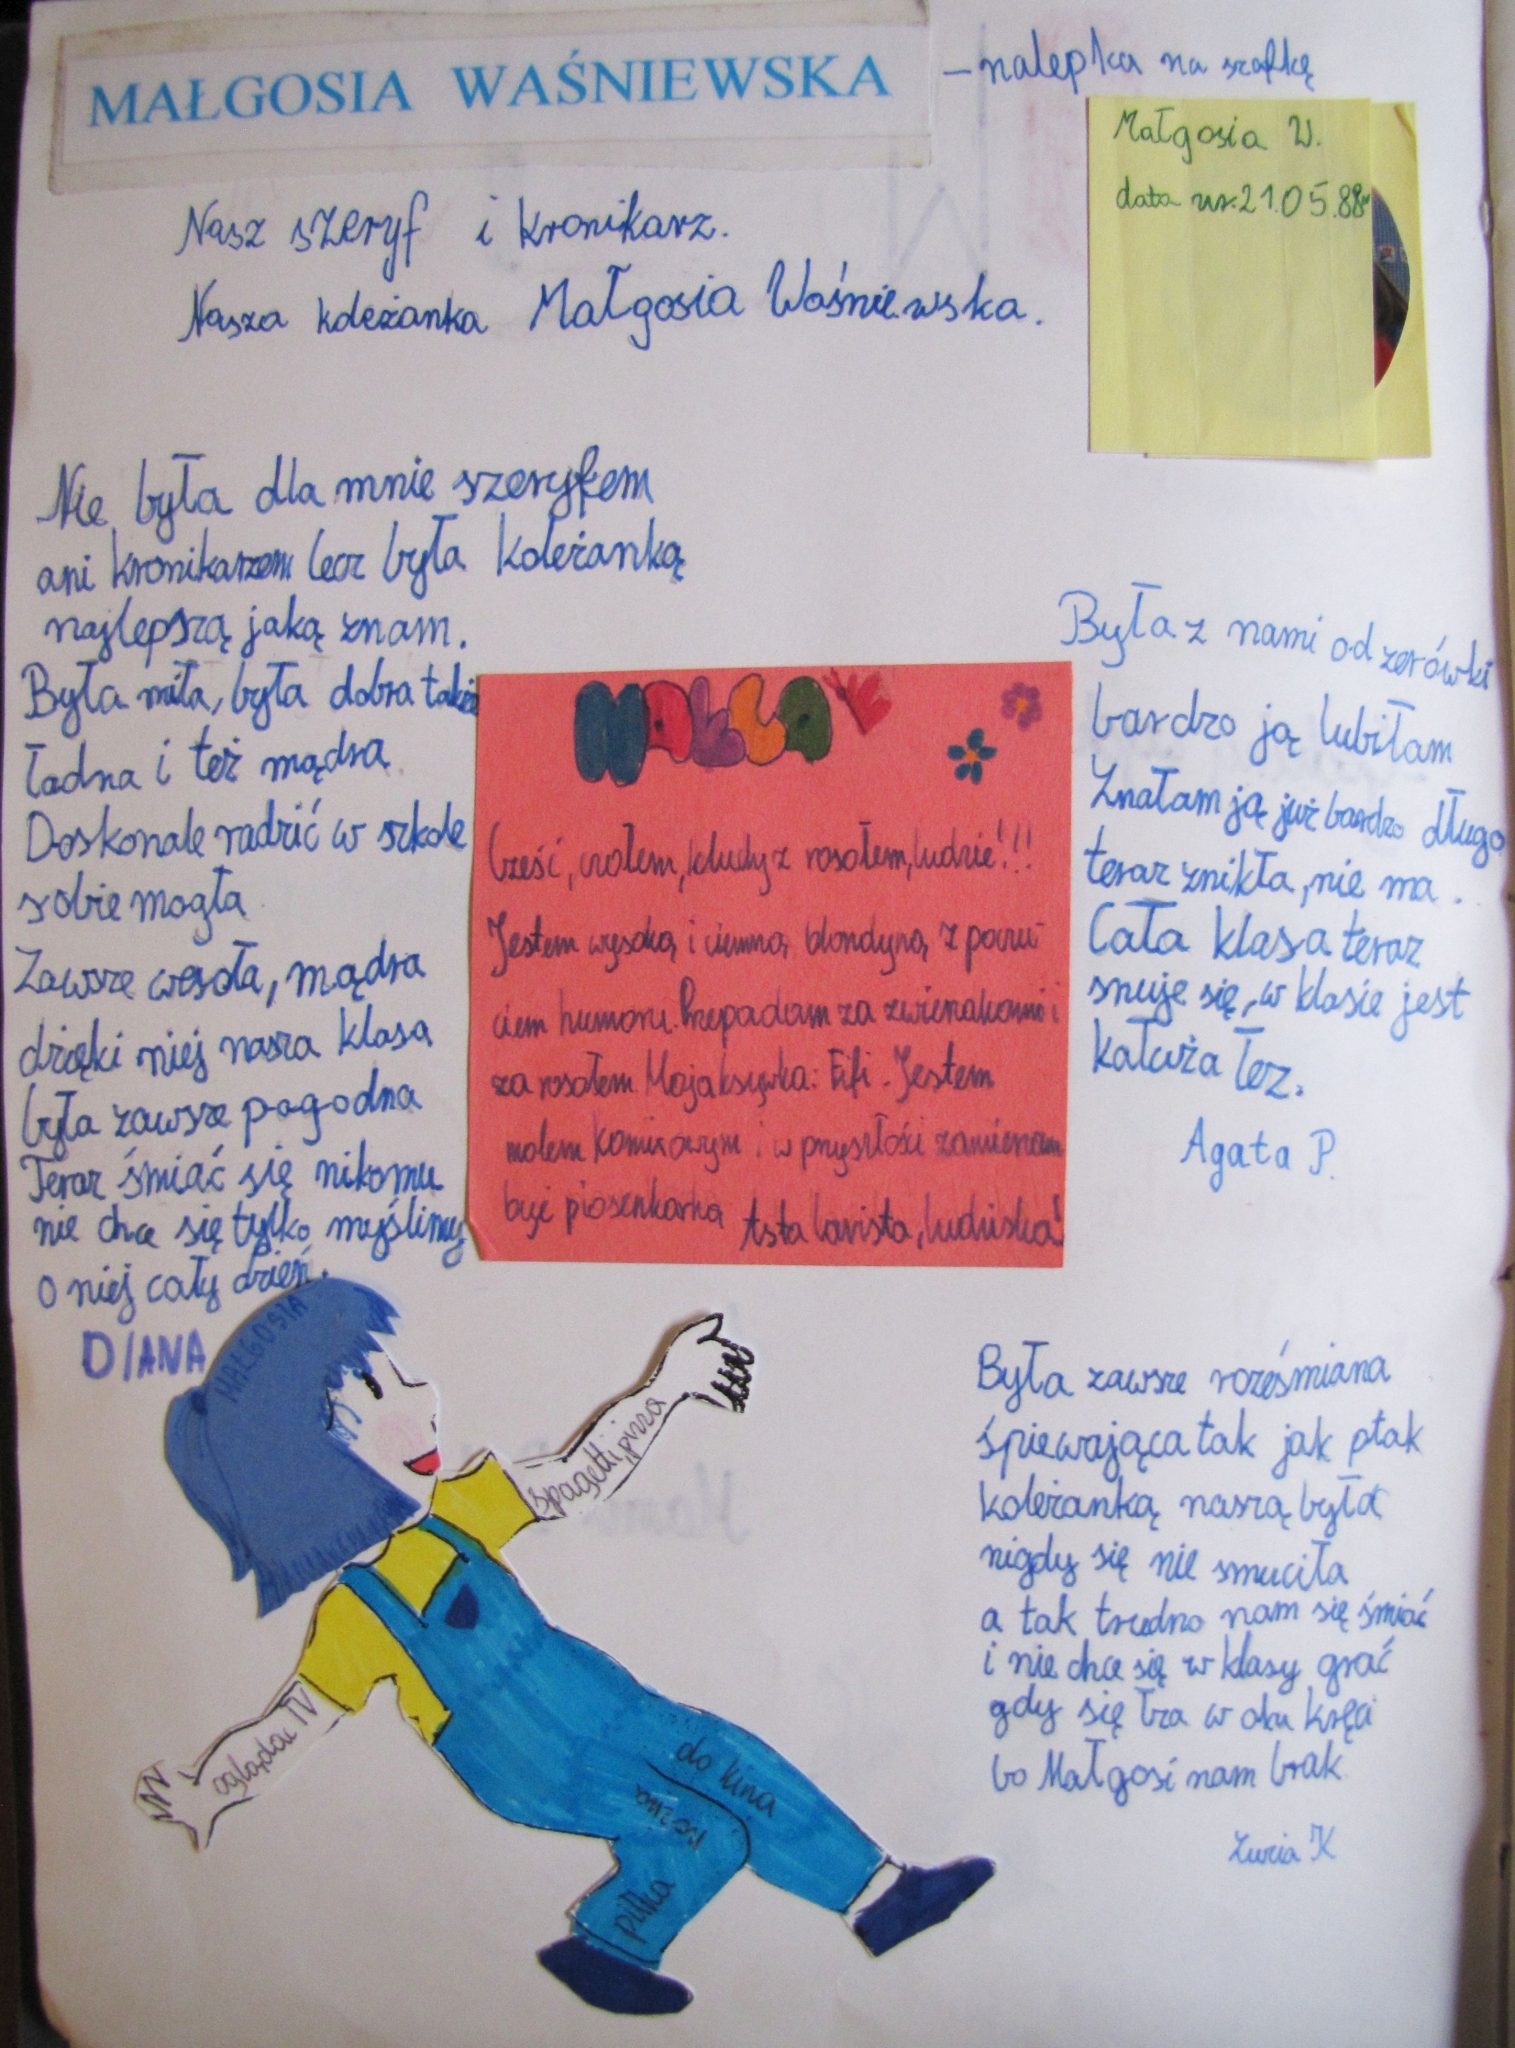 MAŁGOSIA WAŚNIEWSKA
- nalepka na szafkę
Małgosia W.
data ur. 21.05.88r
Nasz szeryf i kronikarz.
Nasza koleżanka Małgosia Waśniewska.
Nie była dla mnie szeryfem
ani kronikarzem lecz była koleżanką
najlepszą jaką znam.
Była miła, była dobra także
ładna i też mądra
Doskonale radzić w szkole
sobie mogła
Zawsze wesoła, mądra
dzięki niej nasza klasa
była zawsze pogodna
Teraz śmiać się nikomu
nie chce się tylko myślimy
o niej cały dzień.
DIANA
MAŁGA
Cześć, czołem, kluchy z rosołem, ludzie!!!
Jestem wysoką i ciemną blondyną z poczu-
ciem humoru. Przepadam za zwierzakami i
za rosołem. Moja ksywka: Fifi. Jestem
molem komixowym i w przyszłości zamierzam
być piosenkarką
Asta lavista, ludziska!
Była z nami od zerówki
bardzo ją lubiłam
Znałam ją już bardzo długo
teraz znikła, nie ma.
Cała klasa teraz
snuje się, w klasie jest
kałuża łez.
Agata P.
MAŁGOSIA
spagetti, pizza
oglądać TV
do kina
nożna
piłka
Była zawsze roześmiana
śpiewająca tak jak ptak
koleżanką naszą była
nigdy się nie smuciła
a tak trudno nam się śmiać
i nie chce się w klasy grać
gdy się łza w oku kręci
bo Małgosi nam brak
Zuzia K